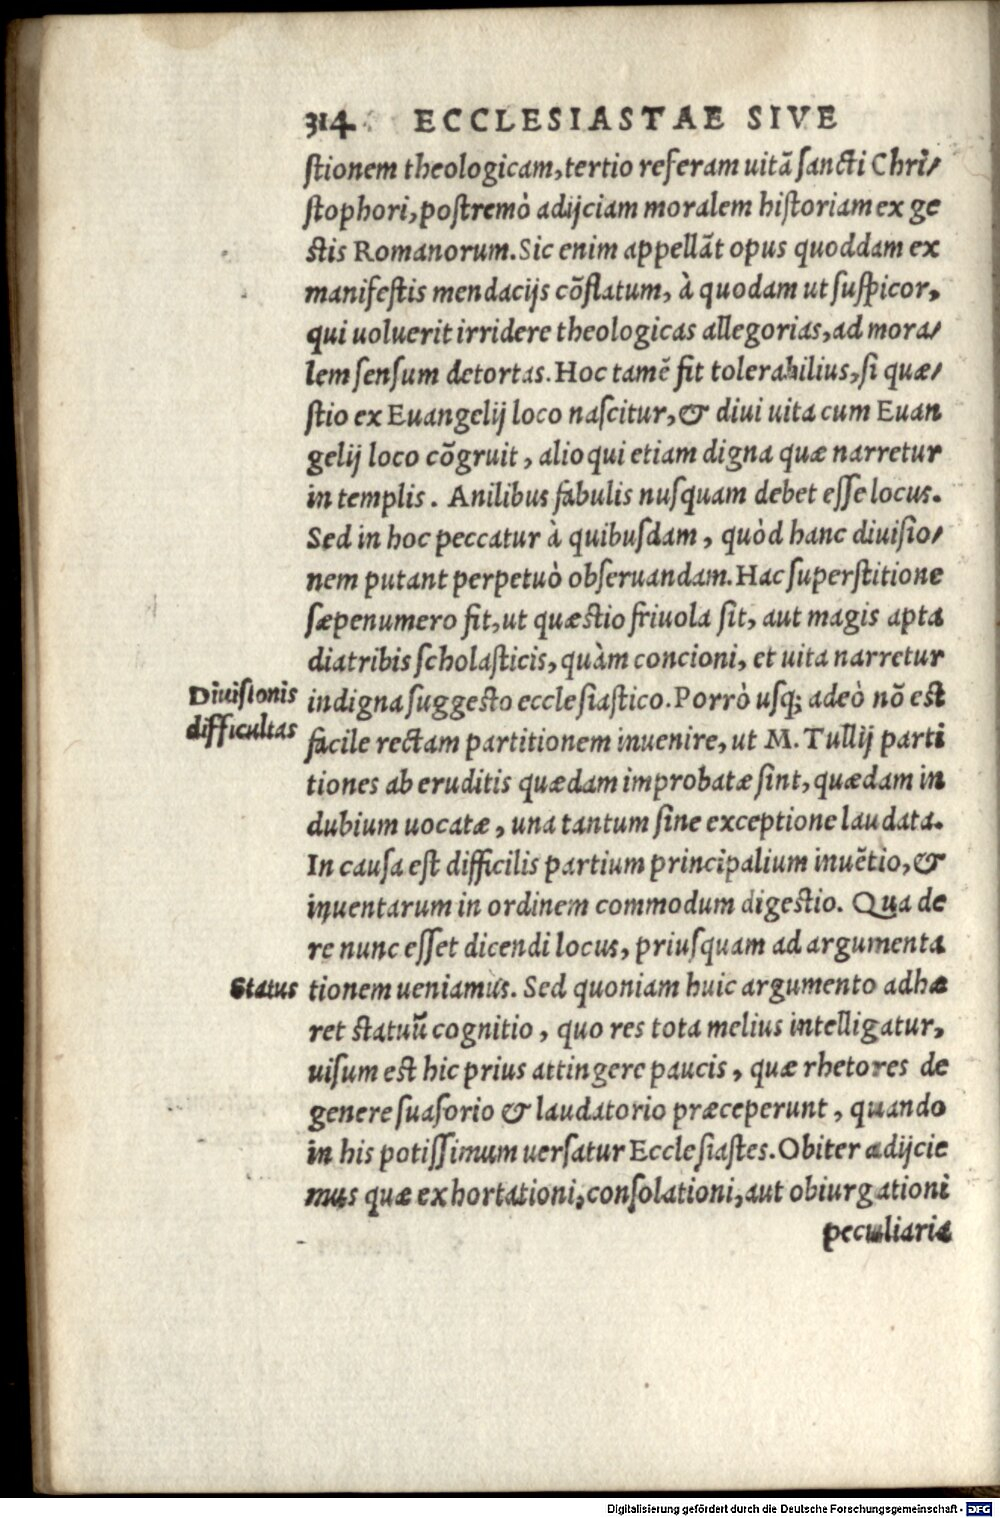 314 ECCLESIASTAE SIVE
ſtionem theologicam, tertio referam uitã ſancti Chri/
ſtophori, poſtremò adijciam moralem hiſtoriam ex ge
ſtis Romanorum. Sic enim appellãt opus quoddam ex
manifeſtis mendacijs cõflatum, à quodam ut ſuſpicor,
qui uoluerit irridere theologicas allegorias, ad mora/
lem ſenſum detortas. Hoc tamẽ fit tolerabilius, ſi quæ/
ſtio ex Euangelij loco naſcitur, & diui uita cum Euan
gelij loco cõgruit, alioqui etiam digna quæ narretur
in templis. Anilibus fabulis nuſquam debet eſſe locus.
Sed in hoc peccatur à quibuſdam, quòd hanc diuiſio/
nem putant perpetuò obſeruandam. Hac ſuperſtitione
ſæpenumero fit, ut quæſtio friuola ſit, aut magis apta
diatribis ſcholaſticis, quàm concioni, et uita narretur
Diuiſionis indigna ſuggeſto eccleſiaſtico. Porrò uſq; adeò nõ eſt
difficultas facile rectam partitionem inuenire, ut M. Tullij parti
tiones ab eruditis quædam improbatæ ſint, quædam in
dubium uocatæ, una tantum ſine exceptione laudata.
In cauſa eſt difficilis partium principalium inuẽtio, &
inuentarum in ordinem commodum digeſtio. Qua de
re nunc eſſet dicendi locus, priuſquam ad argumenta
Status tionem ueniamus. Sed quoniam huic argumento adhæ
ret ſtatuũ cognitio, quo res tota melius intelligatur,
uiſum eſt hic prius attingere paucis, quæ rhetores de
genere ſuaſorio & laudatorio præceperunt, quando
in his potiſſimum uerſatur Eccleſiaſtes. Obiter adijcie
mus quæ exhortationi, conſolationi, aut obiurgationi
peculiaria
Digitalisierung gefördert durch die Deutsche Forschungsgemeinschaft - DFG